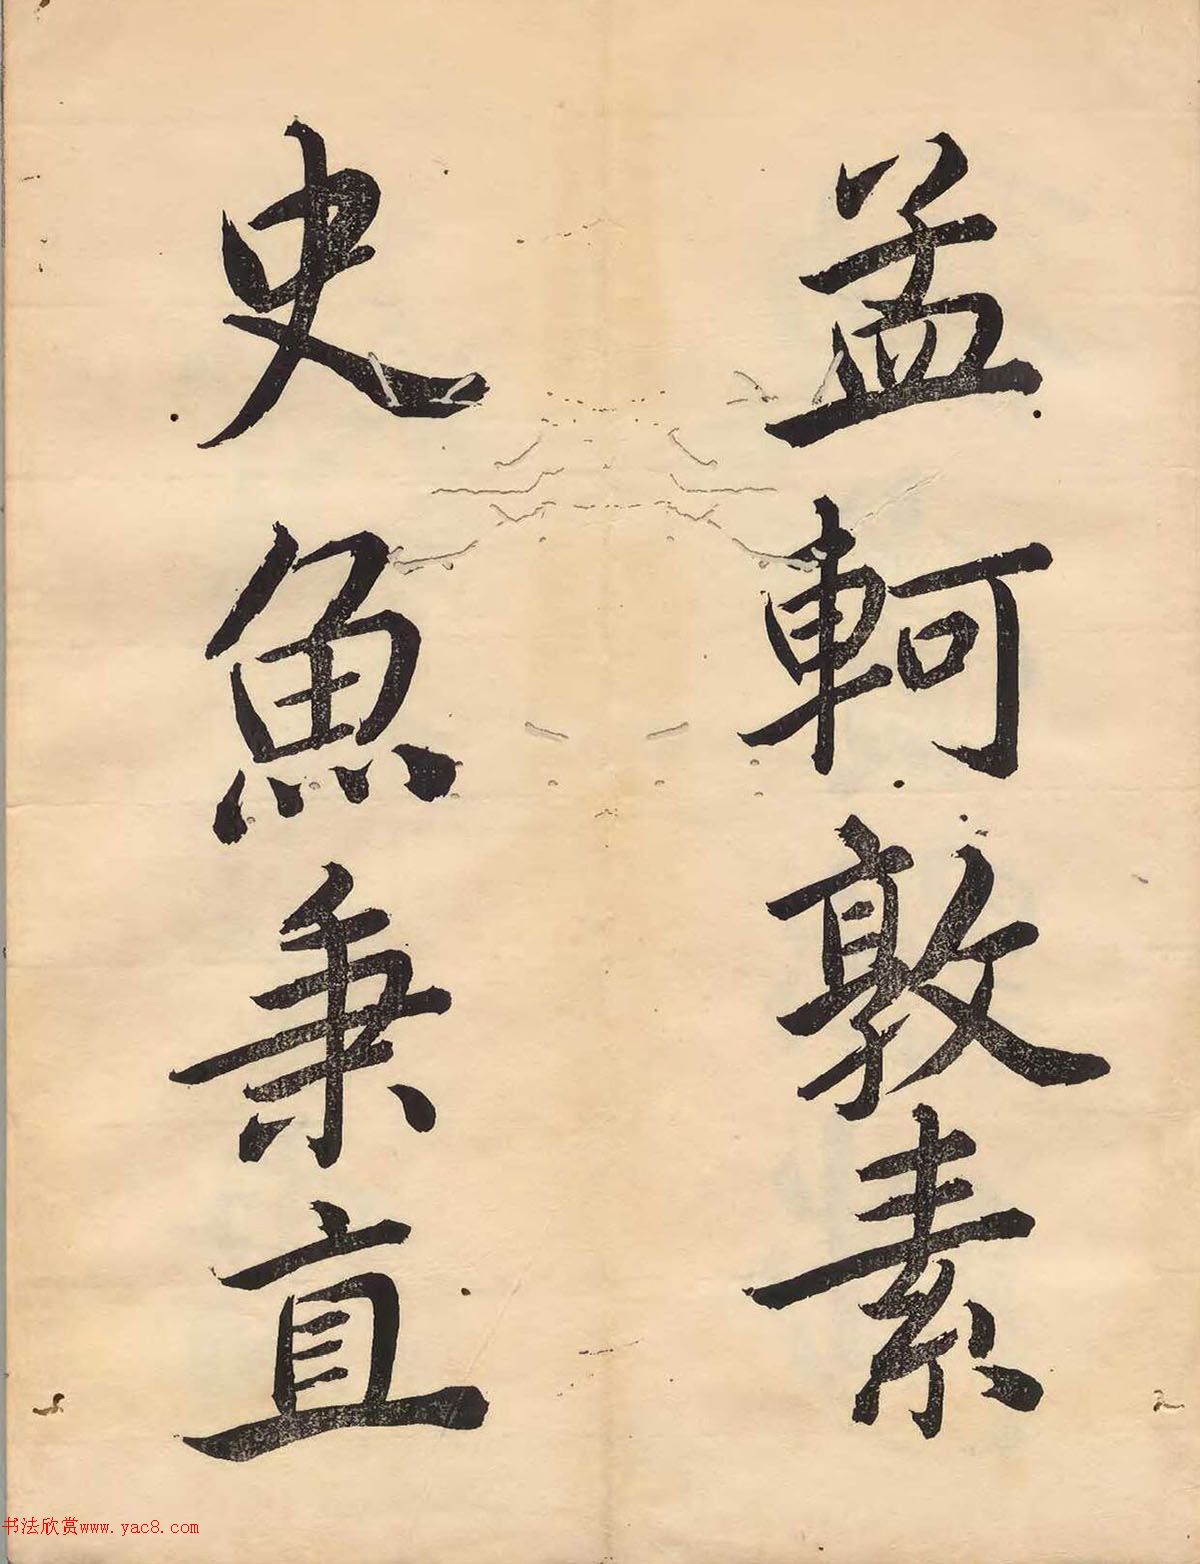 孟軻敦素
史魚秉直
书法欣赏www.yac8.com